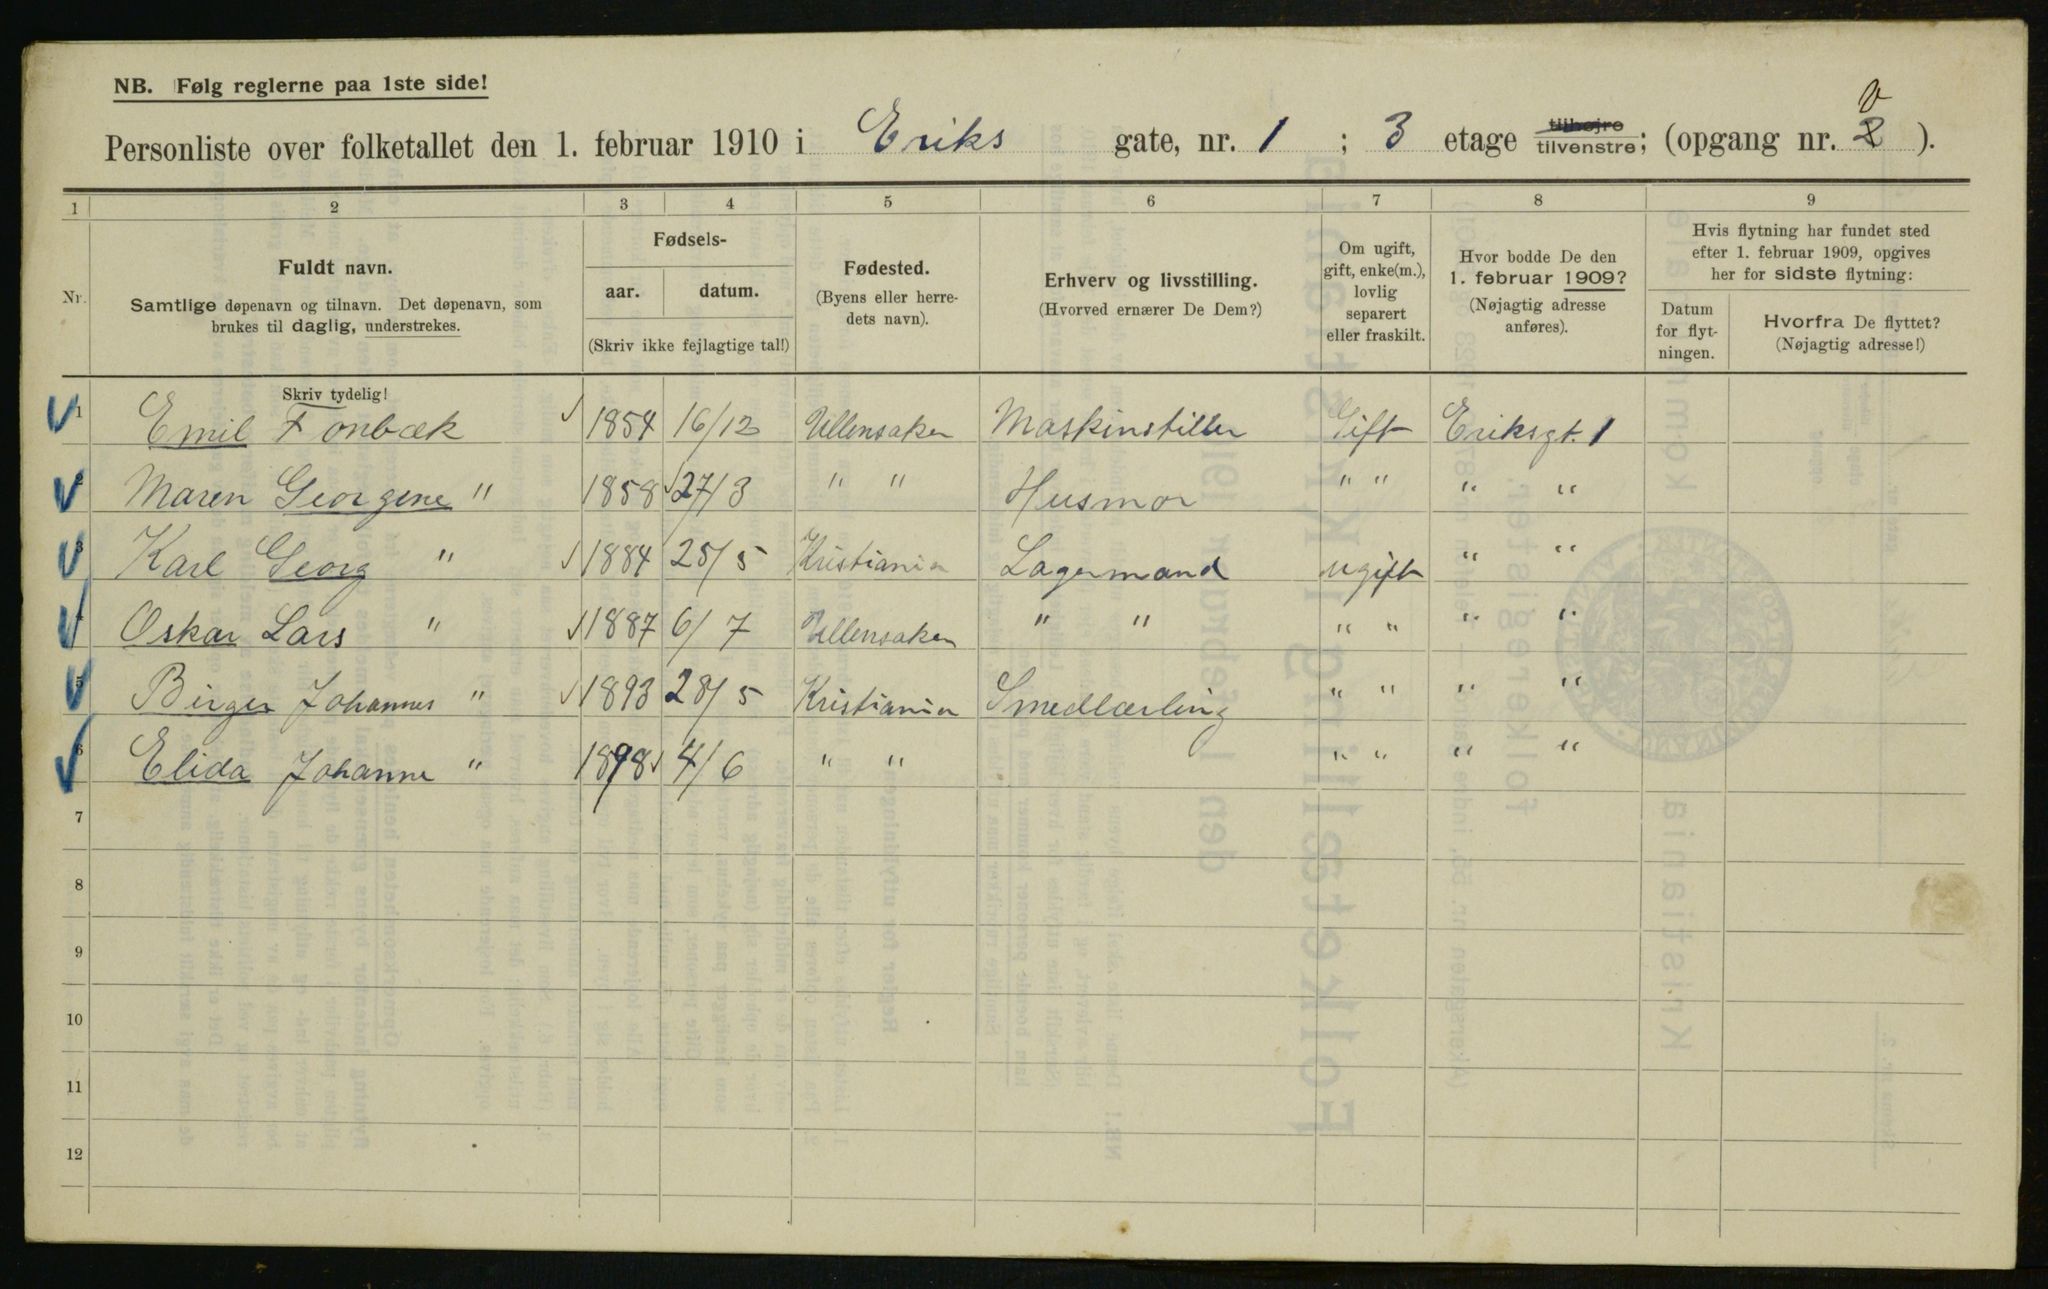 NB. Følg reglerne paa 1ste side!
Personliste over folketallet den 1. februar 1910 i Eriks gate, nr. 1 ; 3 etage tilhøjre tilvenstre; (opgang nr. 2 ).
1 2 3 4 5 6 7 8 9
Nr.
Fuldt navn.
Samtlige døpenavn og tilnavn. Det døpenavn, som
brukes til daglig, understrekes.
Fødsels-
aar. datum.
(Skriv ikke fejlagtige tal!)
Fødested.
(Byens eller herre-
dets navn).
Erhverv og livsstilling.
(Hvorved ernærer De Dem?)
Om ugift,
gift, enke(m.),
lovlig
separert
eller fraskilt.
Hvor bodde De den
1. februar 1909?
(Nøjagtig adresse
anføres).
Hvis flytning har fundet sted
efter 1. februar 1909, opgives
her for sidste flytning:
Datum
for flyt-
ningen.
Hvorfra De flyttet?
(Nøjagtig adresse!)
Skriv tydelig!
1 Emil Fonbæk 1854 16/12 Ullensaker Maskinstiller Gift Eriksgt. 1
2 Maren Georgene " 1858 27/3 " " Husmor " " " "
3 Karl Georg " 1884 25/5 Kristiania Lagermand ugift " "
4 Oskar Lars " 1887 6/7 Ullensaker " " " " " "
5 Birger Johannes " 1893 28/5 Kristiania Smedlærling " " " "
6 Elida Johanne " 1898 4/6 " " " " " "
7
8
9
10
11
12